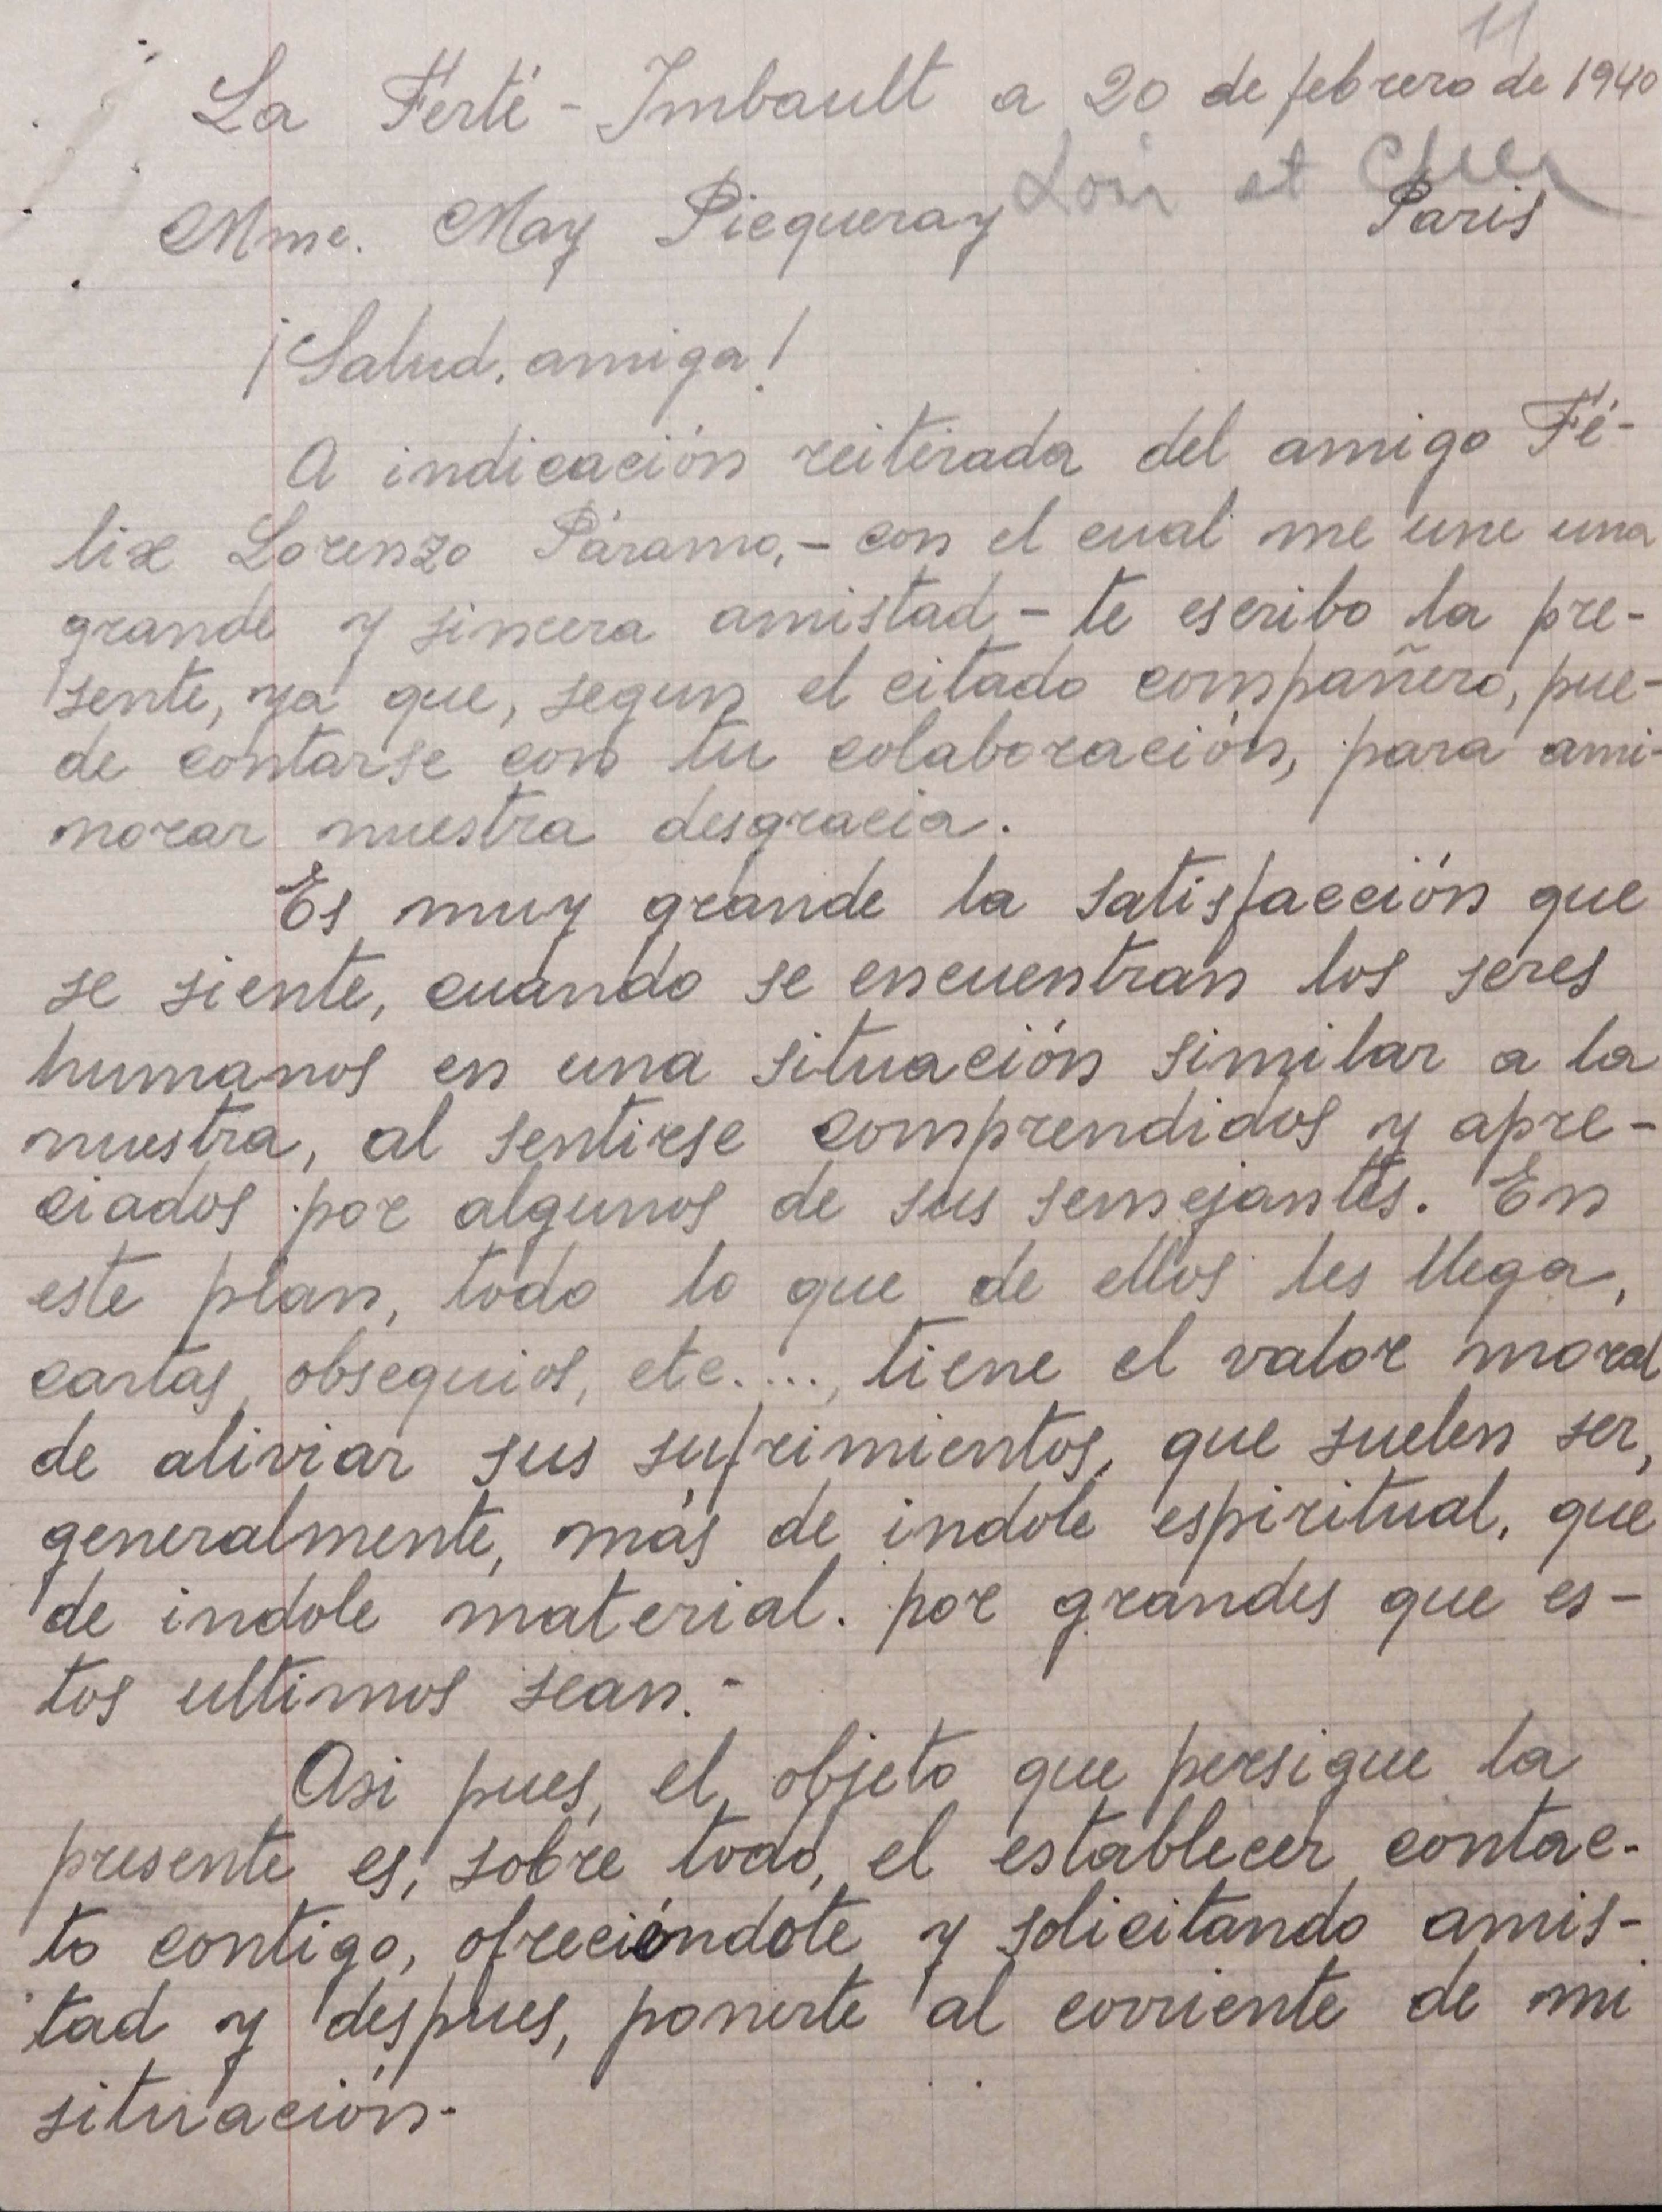 11
La Ferté-Imbault a 20 de febrero de 1940
Loir et Cher
Mme. May Picqueray Paris
¡Salud, amiga!
A indicación reiterada del amigo Fé-
lix Lorenzo Páramo, - con el cual me une una
grande y sincera amistad - te escribo la pre-
sente, ya que, segun el citado compañero, pue-
de contarse con tu colaboración, para ami-
norar nuestra desgracia.
Es muy grande la satisfacción que
se siente, cuando se encuentran los seres
humanos en una situación similar a la
nuestra, al sentirse comprendidos y apre-
ciados por algunos de sus semejantes. En
este plan, todo lo que de ellos les llega,
cartas, obsequios, etc...., tiene el valor moral
de aliviar sus sufrimientos, que suelen ser,
generalmente, más de indole espiritual, que
de indole material. por grandes que es-
tos ultimos sean.-
Asi pues, el objeto que persigue la
presente es, sobre todo, el establecer contac-
to contigo, ofreciéndote y solicitando amis-
tad y despues, ponerte al corriente de mi
situación.-